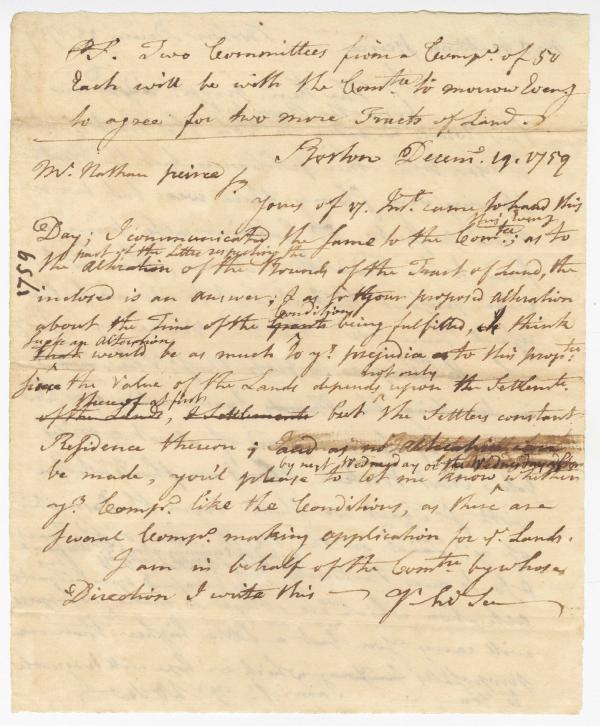 PS. Two Committees from a Compy. of 50
Each will be with the Comtee to morrow Eveng
to agree for two more Tracts of Land.
Boston Decemr. 19. 1759
Mr. Nathan peirce Sr
Yours of 17. Inst. came to hand this
this Eveng
Day; I communicated the same to the Comtee; as to
part of the Letter respecting the
the alteration of the Bounds of the Tract of Land, the
inclosed is an answer; & as for your proposed alteration
Conditions
about the Time of the Grants being fulfilled, think
such an alteration
that would be as much to yr. prejudice as to this proptee.
since the Value of the Lands depends not only upon the Settlemts.
thereof at first
of the Lands, & Settlements but the Settlers constant
Residence thereon; and as no alteration can
by next Wednesday or the Wednesday after
be made, you'd please to let me know whether
yr. Compy. like the Conditions, as there are
several Compys. making application for yr. Lands.
I am in behalf of the Comtee by whose
Direction I write this — Yr hb Ser
1759